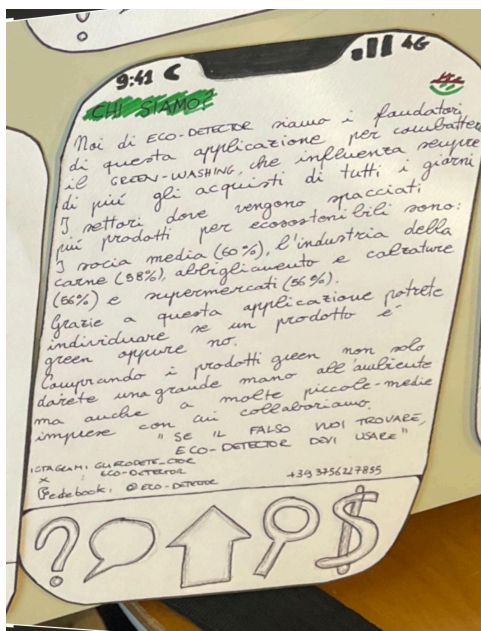 9:41 4G
CHI SIAMO?
Noi di ECO-DETECTOR siamo i faudatori
di questa applicazione per combattere
il GREEN-WASHING, che influenza sempre
di più gli acquisti di tutti i giorni
I settori dove vengono spacciati
più prodotti per ecosostenibili sono:
I socia media (60%), l'industria della
carne (58%), abbigliamento e calzature
(56%) e supermercati (56%).
Grazie a questa applicazione potrete
individuare se un prodotto è
green oppure no.
Comprando i prodotti green non solo
darete una grande mano all'ambiente
ma anche a molte piccole-medie
imprese con cui collaboriamo.
"SE IL FALSO VUOI TROVARE,
ECO-DETECTOR DEVI USARE"
X : ECO-DETECTOR
@ECO-DETECTOR +393756227855
? $